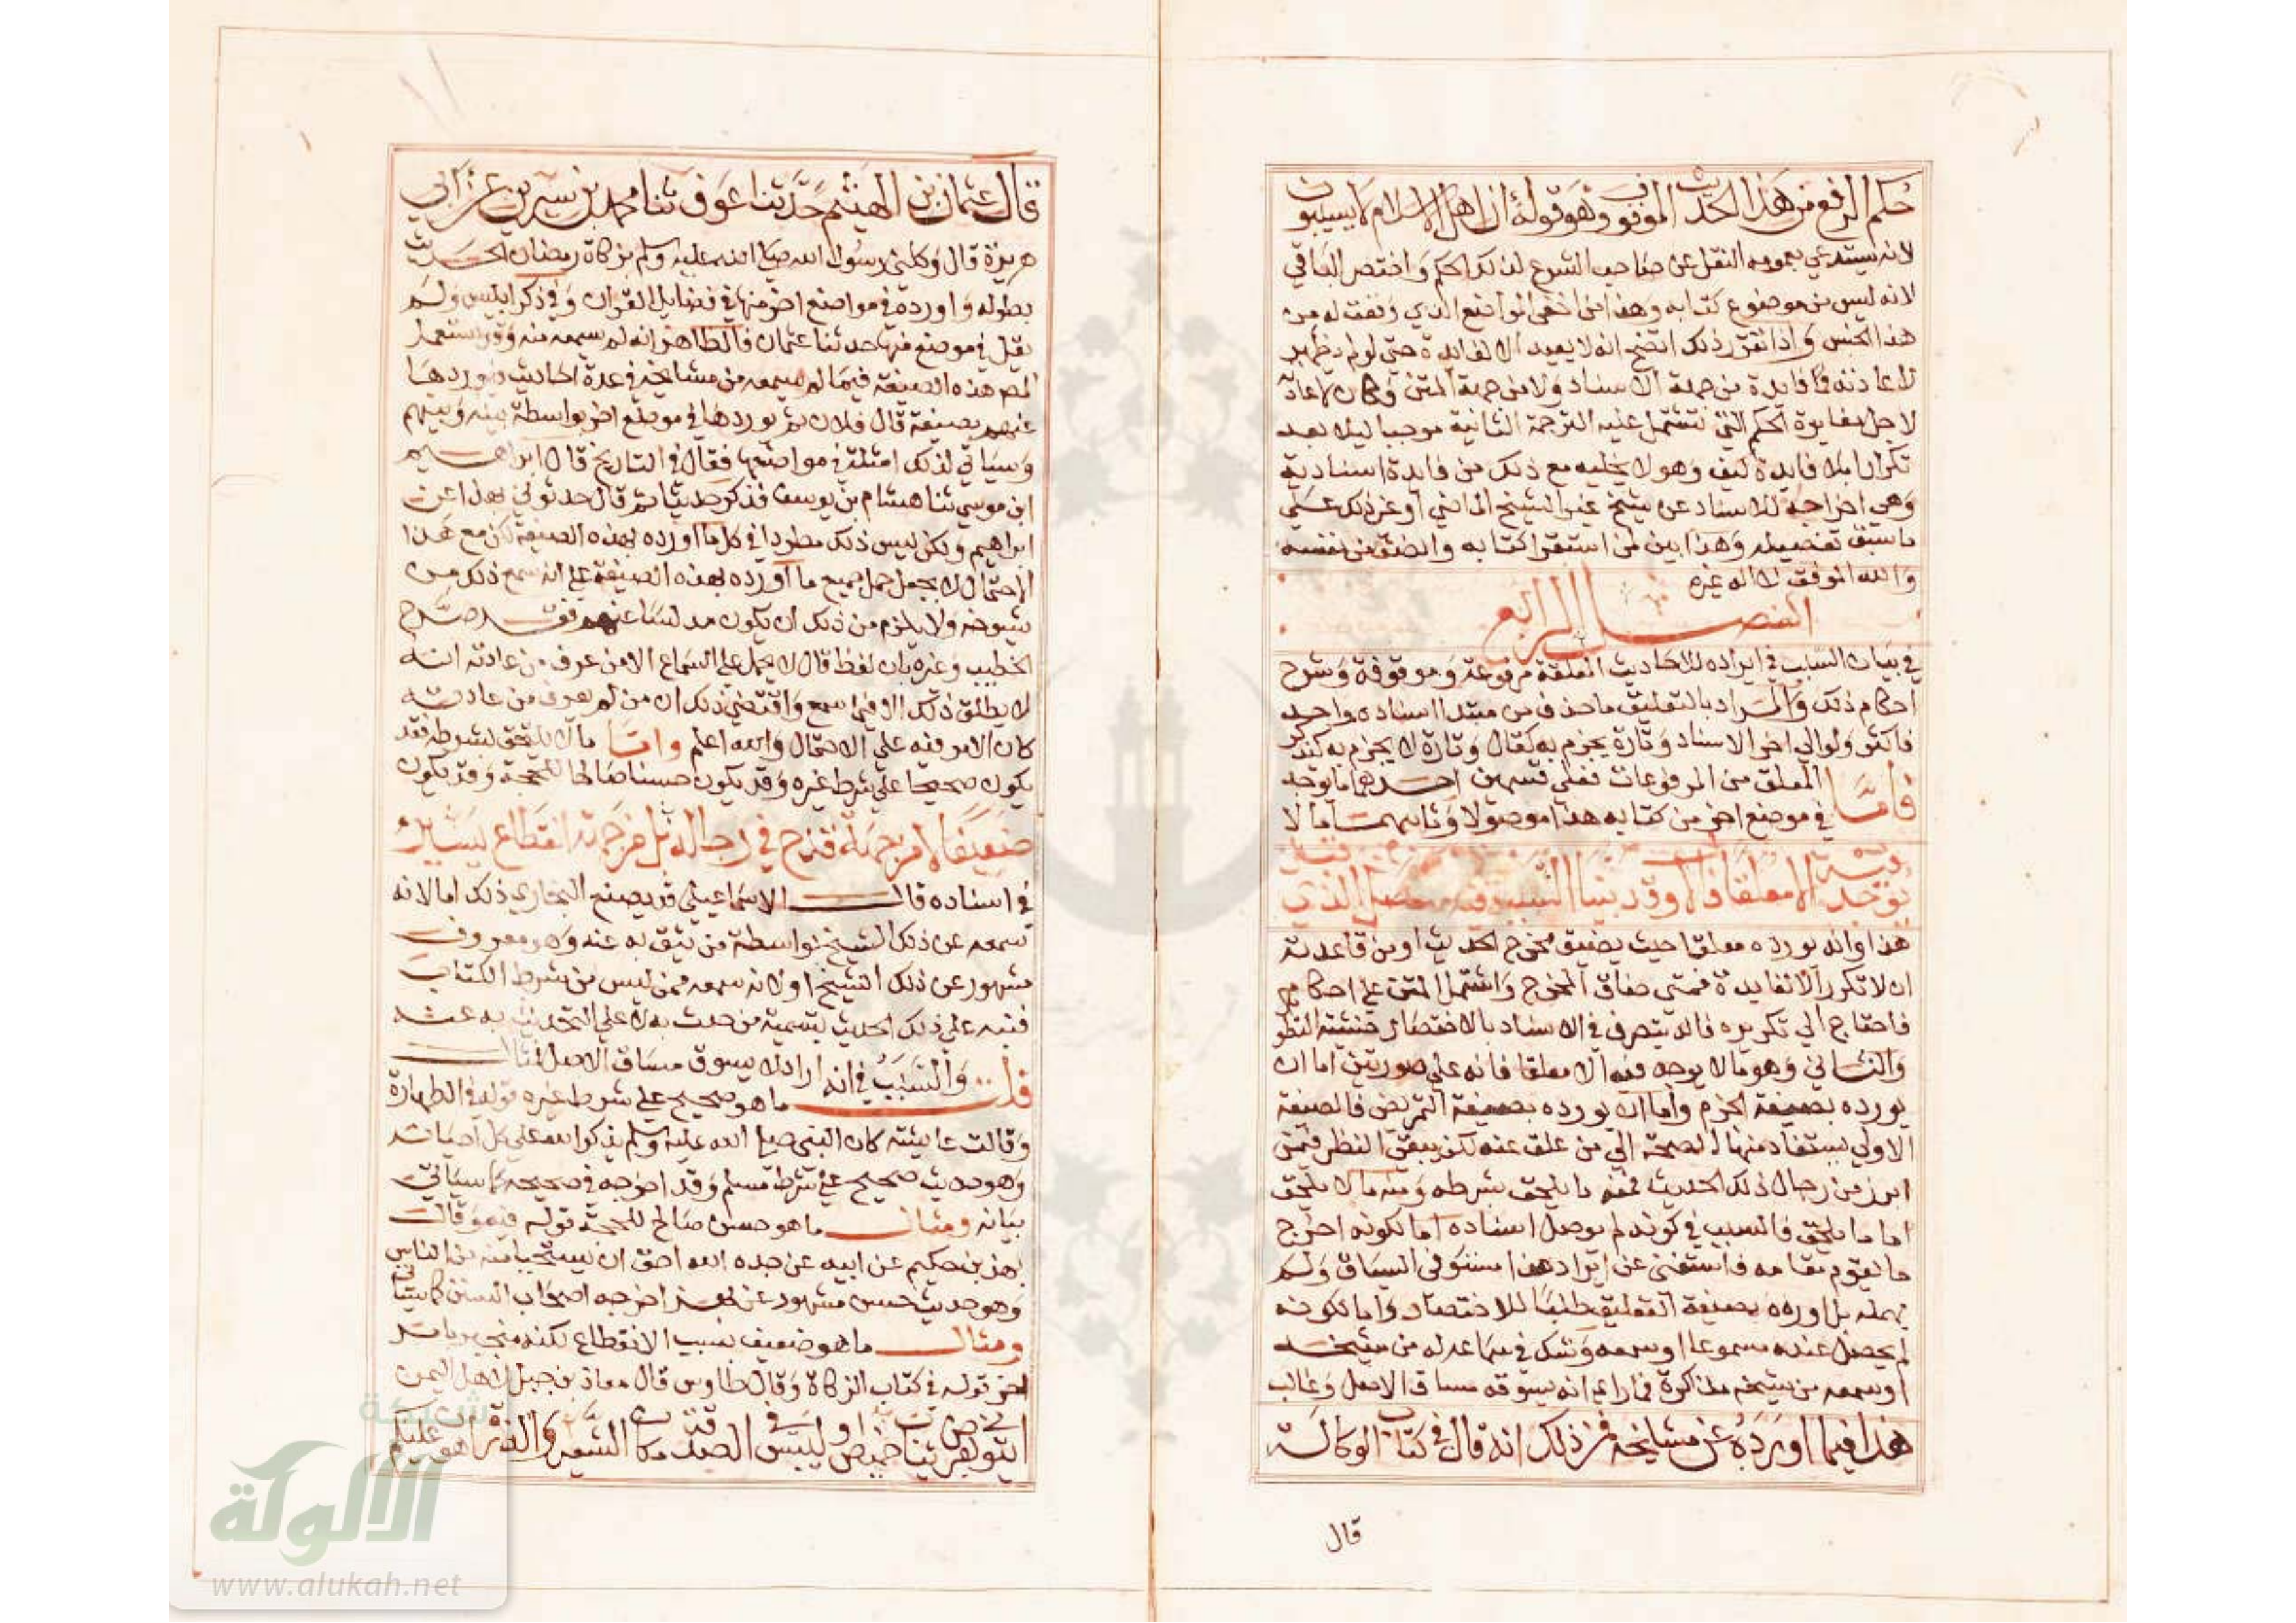 حكم الرفع من هذا الحديث الموقوف وهو قوله ان اهل الاسلام لا يسيبون
لانه يستدعي بعمومه النقل عن صاحب الشرع لذلك الحكم واختصر الباقي
لانه ليس من موضوع كتابه وهذا من اخفى المواضع الذي وقفت له من
هذا الجنس واذا تقرر ذلك اتضح انه لا يعيد الا لفايدة حتى لو لم يظهر
لاعادته فايدة من جهة الاسناد ولا من جهة المتن وكان لاعادته
لاجل مغايرة الحكم التي تشتمل عليه الترجمة الثانية موجبا ليلا يعد
تكرارا بلا فايدة كيف وهو لا يخليه مع ذلك من فايدة اسنادية
وهي اخراجه للاسناد عن شيخ غير الشيخ الماضي او غير ذلك على
ما سبق تفصيله وهذا بين لمن استقرا كتابه وانصف من نفسه
والله الموفق لا اله غيره
الفصل الرابع
في بيان السبب في ايراده للاحاديث المعلقة مرفوعة وموقوفة وشرح
احكام ذلك والمراد بالتعليق ما حذف من مبتدا اسناده واحد
فاكثر ولو الي اخر الاسناد وتارة يجزم به كقال وتارة لا يجزم به كيذكر
فاما المعلق من المرفوعات فعلي قسمين احدهما ما يوجد
في موضع اخر من كتابه هذا موصولا وثانيهما ما لا
يوجد فيه الا معلقا فالاول قد بينا السبب فيه في الفصل الذي قبل
هذا وانه يورده معلقا حيث يضيق مخرج الحديث اذ من قاعدته
ان لا تكرر الا لفايدة فمتى ضاق المخرج واشتمل المتن على احكام
فاحتاج الي تكريره فانه يتصرف في الاسناد بالاختصار خشية التطو
والثاني وهو ما لا يوجد فيه الا معلقا فانه على صورتين اما ان
يورده بصيغة الجزم واما ان يورده بصيغة التمريض فالصيغة
الاولي يستفاد منها الصحة الي من علق عنه لكن يبقى النظر فيمن
ابرز من رجال ذلك الحديث فمنه ما يلتحق بشرطه ومنه ما لا يلتحق
اما ما يلتحق فالسبب في كونه لم يوصل اسناده اما لكونه اخرج
ما يقوم مقامه فاستغنى عن ايراد هذا مستوفى السياق ولم
يهمله بل اورده بصيغة التعليق طلبا للاختصار واما لكونه
لم يحصل عنده مسموعا او سمعه وشك في سماعه له من شيخه
او سمعه من شيخه مذاكرة فما راى انه يسوقه مساق الاصل وغالب
هذا فيما اورده عن مشايخه فمن ذلك انه قال في كتاب الوكالة
قال
قال عثمان بن الهيثم حدثنا عوف ثنا محمد بن سيرين عن ابي
هريرة قال وكلني رسول الله صلى الله عليه وسلم بزكاة رمضان الحديث
بطوله واورده في مواضع اخر منها في فضايل القران وفي ذكر ابليس ولم
يقل في موضع منها حدثنا عثمان فالظاهر انه لم يسمعه منه وقد استعمل
المص هذه الصيغة فيما لم يسمعه من مشايخه في عدة احاديث فيوردها
عنهم بصيغة قال فلان ثم يوردها في موضع اخر بواسطة بينه وبينهم
وسياتي لذلك امثلة في مواضعها فقال في التاريخ قال ابراهيم
ابن موسي ثنا هشام بن يوسف فذكر حديثا ثم قال حدثوني بهذا عن
ابراهيم ولكن ليس ذلك مطردا في كل ما اورده بهذه الصيغة لكن مع هذا
الاحتمال لا يجمل حمل جميع ما اورده بهذه الصيغة على انه سمع ذلك من
شيوخه ولا يلزم من ذلك ان يكون مدلسا عنهم فقد صرح
الخطيب وغيره بان لفظ قال لا يحمل على السماع الا من عرف من عادته انه
لا يطلق ذلك الا فيما سمع واقتضى ذلك ان من لم يعرف من عادته
كان الامر فيه علي الاحتمال والله اعلم واما ما لا يلتحق بشرطه فقد
يكون صحيحا على شرط غيره وقد يكون حسنا صالحا للحجة وقد يكون
ضعيفا لا من جهة قدح في رجاله بل من جهة انقطاع يسير
في اسناده قال الاسماعيلي قد يصنع البخاري ذلك اما لانه
سمعه عن ذلك الشيخ بواسطة من يثق به عنه وهو معروف
مشهور عن ذلك الشيخ او لانه سمعه ممن ليس من شرط الكتاب
فنبه على ذلك الحديث بتسمية من حدث به لا على التحديث به عنه
قلت والسبب في انه اراد لا يسوق مساق الاصل مثال
ما هو صحيح على شرط غيره قوله في الطهارة
وقالت عايشة كان النبي صلى الله عليه وسلم يذكر الله على كل احيانه
وهو حديث صحيح على شرط مسلم وقد اخرجه في صحيحه كما سياتي
بيانه ومثال ما هو حسن صالح للحجة قوله فيه وقال
بهز بن حكيم عن ابيه عن جده الله احق ان يستحيا منه من الناس
وهو حديث حسن مشهور عن بهز اخرجه اصحاب السنن كما سياتي
ومثال ما هو ضعيف بسبب الانقطاع لكنه منجبر بامر
اخر قوله في كتاب الزكاة وقال طاوس قال معاذ بن جبل لاهل اليمن
ايتوني بعرض ثياب خميص او لبيس في الصدقة مكان الشعير والذرة اهون عليكم
شبكة
الألوكة
www.alukah.net